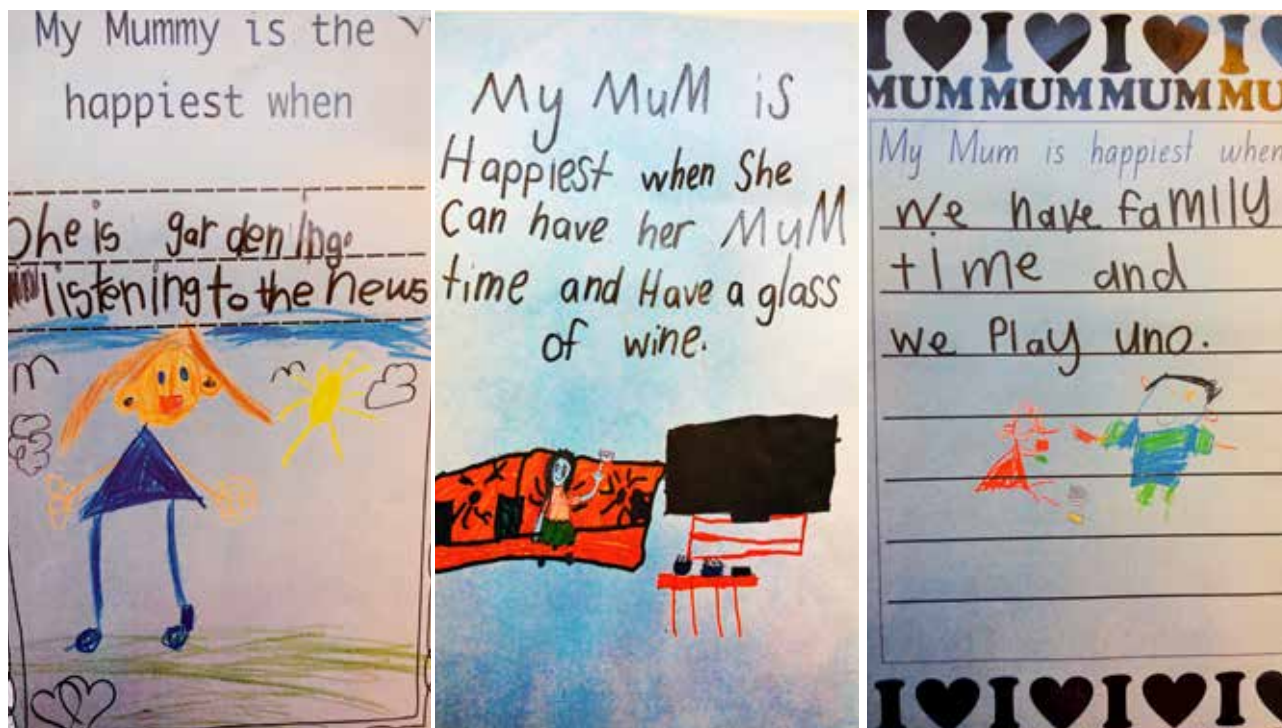 My Mummy is the
happiest when
She is gardening.
listening to the news
My MuM is
Happiest when She
Can have her MuM
time and Have a glass
of wine.
I ♥ I ♥ I ♥ I
MUM MUM MUM MU
My Mum is happiest when
we have family
time and
we Play uno.
I ♥ I ♥ I ♥ I